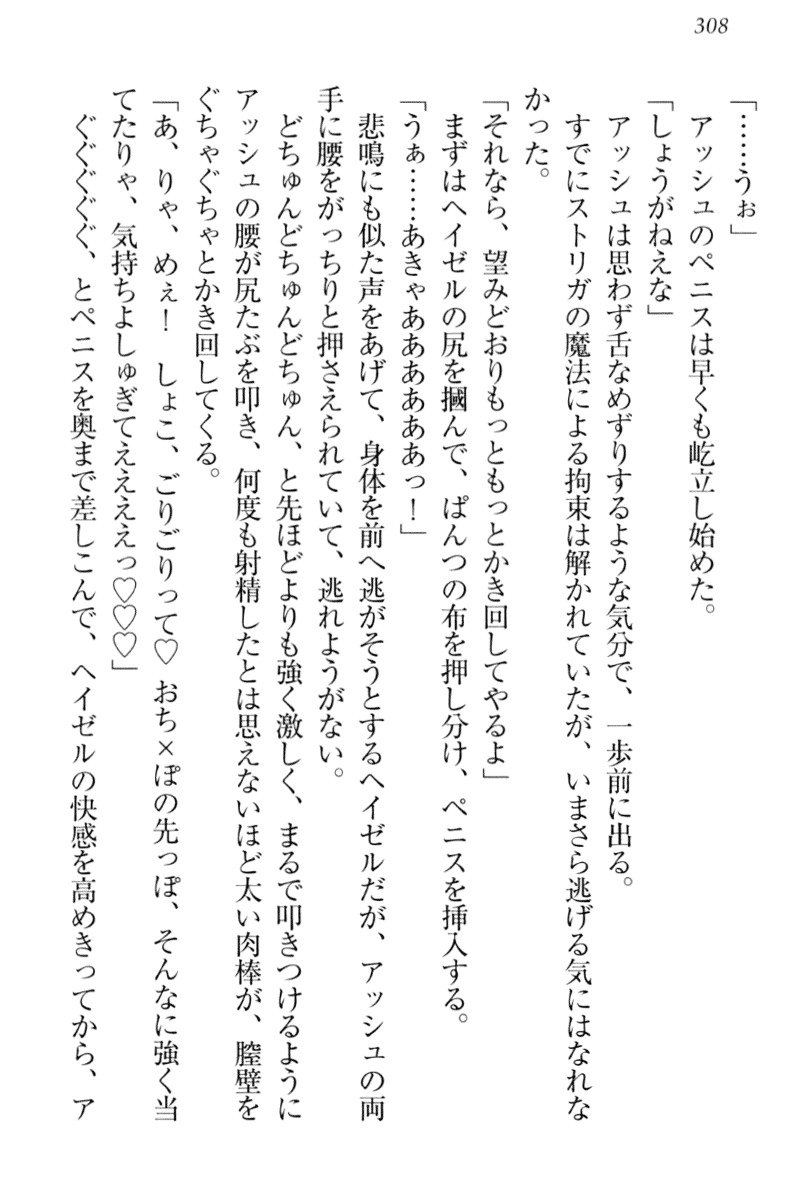 308
「……うぉ」
アッシュのペニスは早くも屹立し始めた。
「しょうがねえな」
アッシュは思わず舌なめずりするような気分で、一歩前に出る。
すでにストリガの魔法による拘束は解かれていたが、いまさら逃げる気にはなれな
かった。
「それなら、望みどおりもっともっとかき回してやるよ」
まずはヘイゼルの尻を摑んで、ぱんつの布を押し分け、ペニスを挿入する。
「うぁ……あきゃあああああっ！」
悲鳴にも似た声をあげて、身体を前へ逃がそうとするヘイゼルだが、アッシュの両
手に腰をがっちりと押さえられていて、逃れようがない。
どちゅんどちゅんどちゅん、と先ほどよりも強く激しく、まるで叩きつけるように
アッシュの腰が尻たぶを叩き、何度も射精したとは思えないほど太い肉棒が、膣壁を
ぐちゃぐちゃとかき回してくる。
「あ、りゃ、めぇ！　しょこ、ごりごりって♡ おち×ぽの先っぽ、そんなに強く当
てたりゃ、気持ちよしゅぎてええええっ♡♡♡」
ぐぐぐぐぐ、とペニスを奥まで差しこんで、ヘイゼルの快感を高めきってから、ア